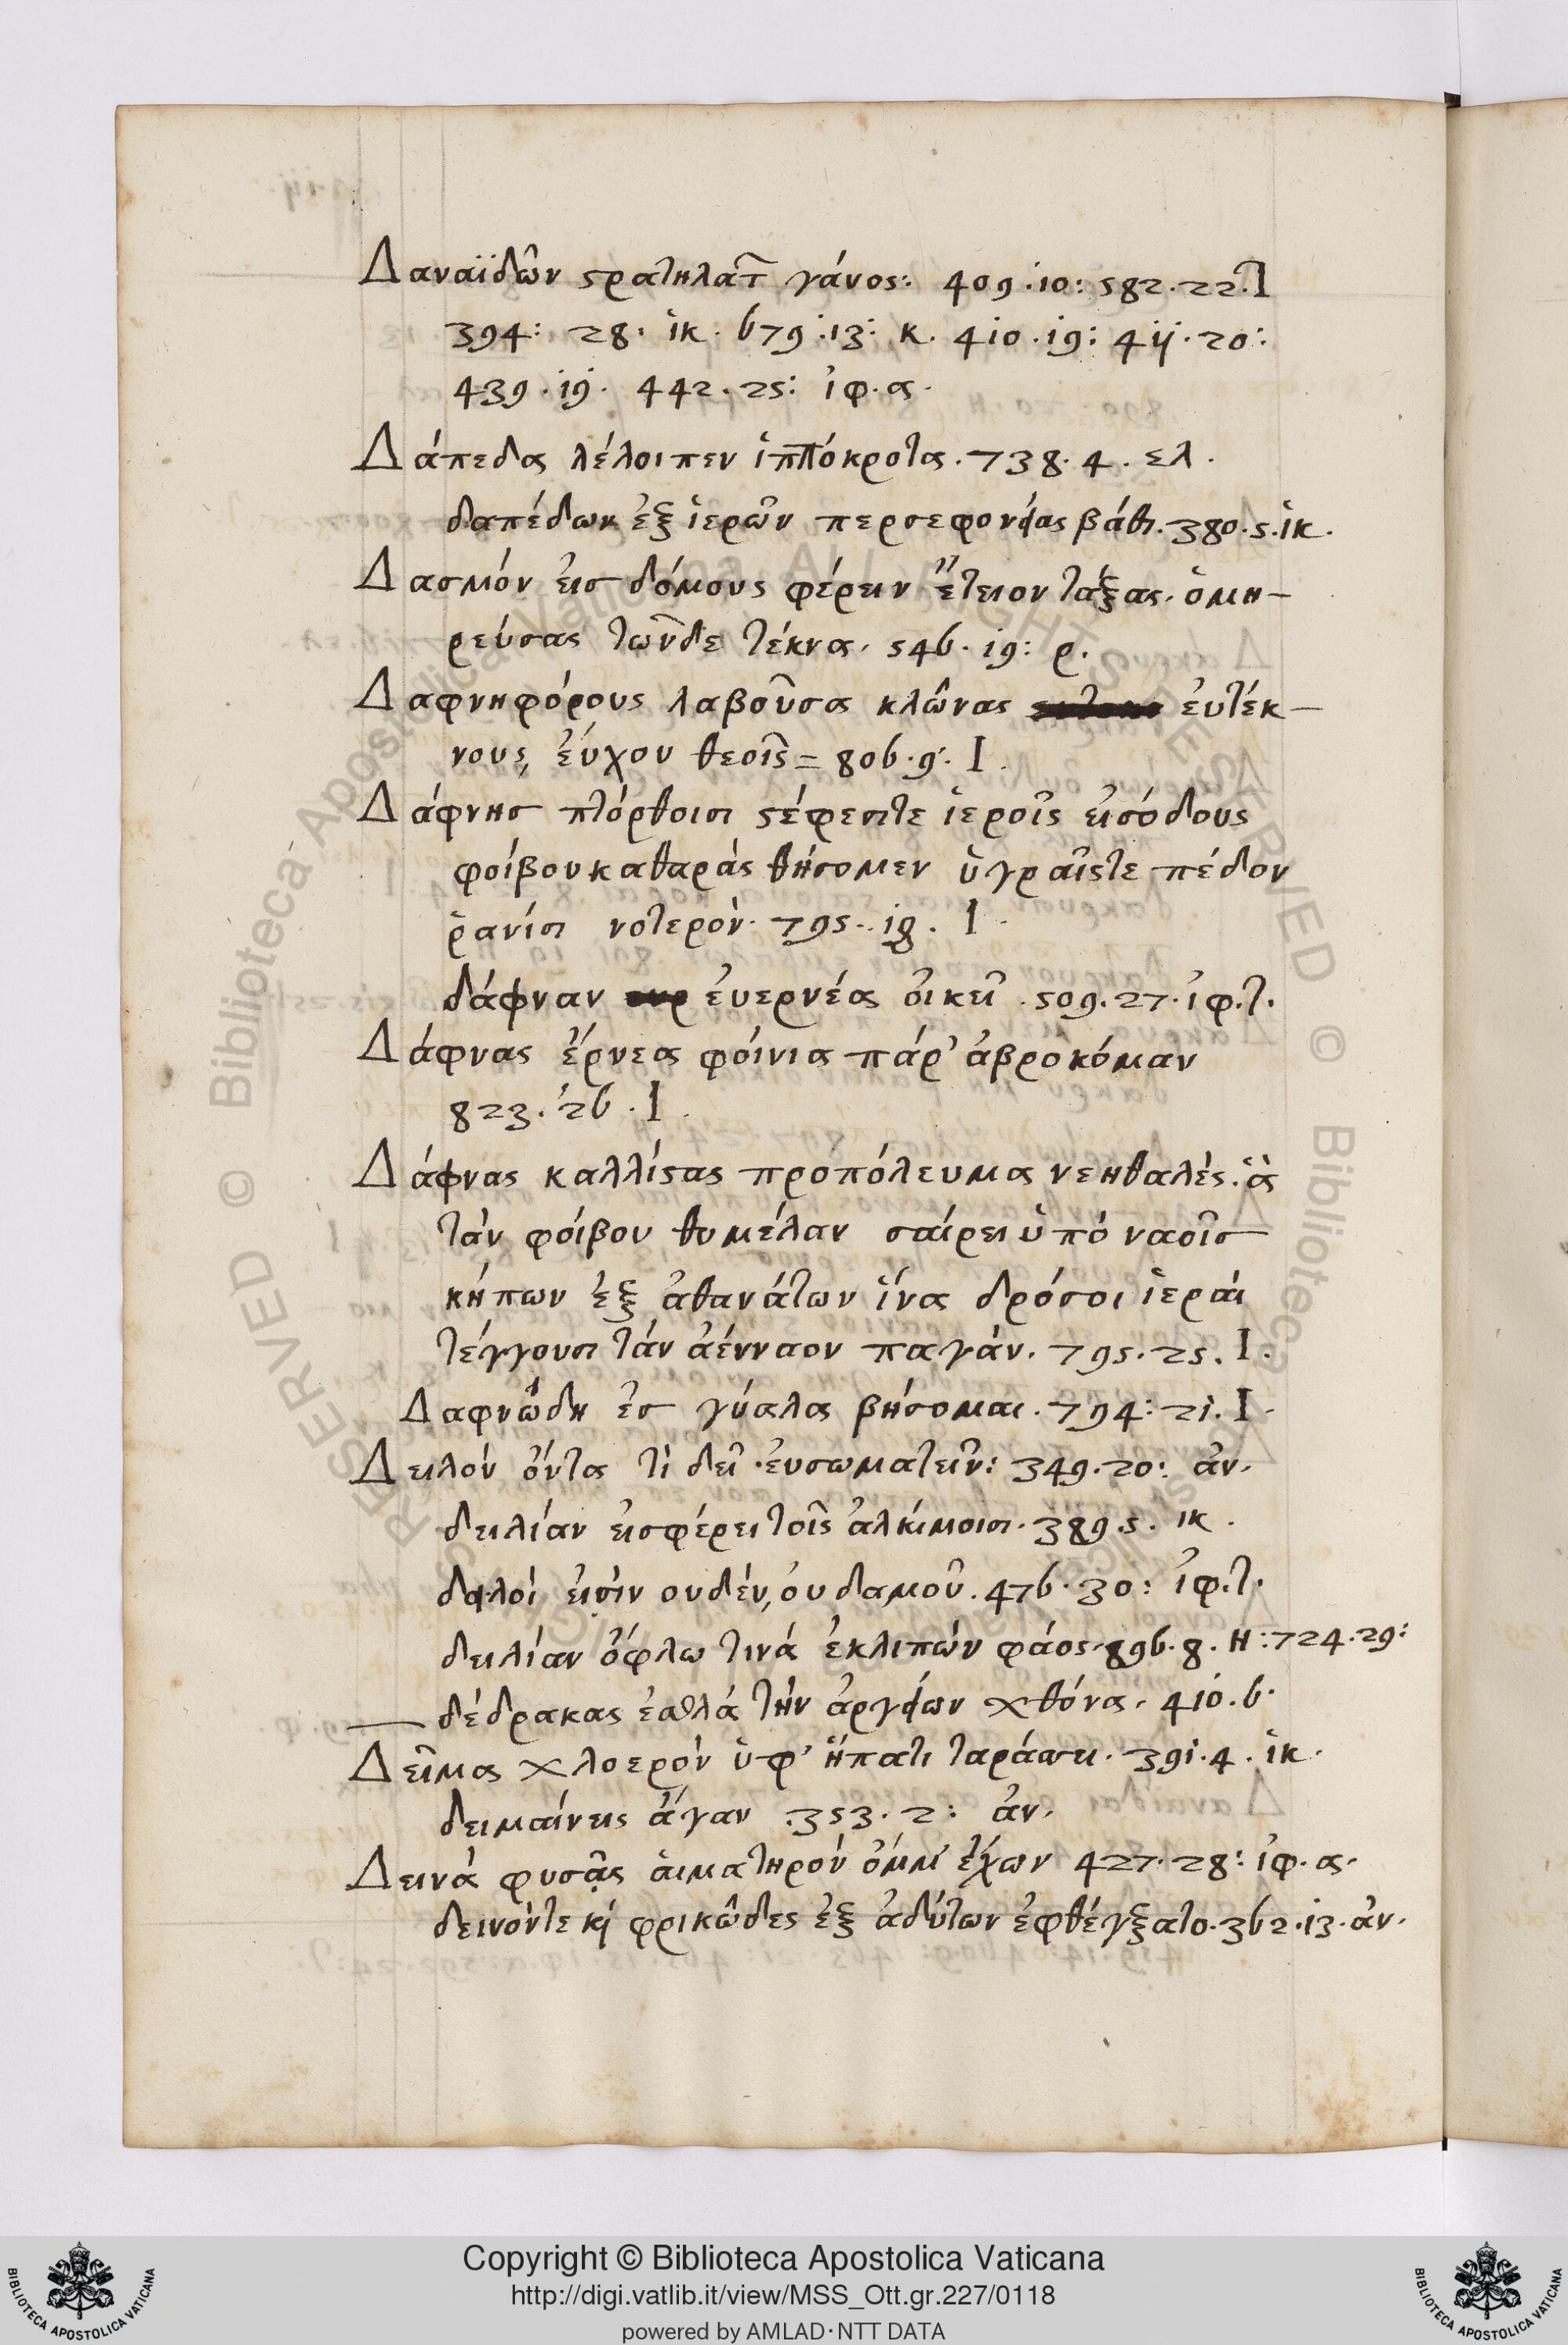 Δαναϊδῶν στρατηλάτ γάνος: 409.10: 582.22. I
394: 28. ἱκ. 679:13: κ. 410.19: 411.20:
439.19. 442.25: ἰφ.α.
Δάπεδα λέλοιπεν ἱππόκροτα. 738.4. ελ.
δαπέδων ἐξ ἱερῶν περσεφονείας βάθ. 380.5. ἱκ.
Δασμόν εἰσ δόμους φέρειν ἔτειον τάξας. ὁμη-
ρεύσας τῶνδε τέκνα. 546.19: ρ.
Δαφνηφόρους λαβοῦσα κλῶνας εὐτέκ-
νους, εὔχου θεοῖς = 806.9. I.
Δάφνησ πτόρθοισι στέφεσίτε ἱεροῖς εἰσόδους
φοίβου καθαρὰς θήσομεν ὑγραῖςτε πέδον
ῥανίσι νοτερόν. 795.18. I.
δάφναν ἐυερνέα οἰκεῖ. 509.27. ἰφ.τ.
Δάφνας ἔρνεα φοίνια πάρ' ἁβροκόμαν
823.26. I.
Δάφνας καλλίστας προπόλευμα νεηθαλὲς. ἁ
τάν φοίβου θυμέλαν σαίρει ὑπό ναοῖσ
κήπων ἐξ ἀθανάτων ἵνα δρόσοι ἱεραί
τέγγουσι τάν ἀένναον παγάν. 795.25. I.
Δαφνώδη ἐσ γύαλα βήσομαι. 794: 21. I.
Δειλόν ὄντα τὶ δεῖ. ἐυσωματεῖν: 349.20: ἀν.
δειλίαν εἰσφέρει τοῖς ἀλκίμοισι. 389.5. ικ.
δειλοί εἰσὶν ουδέν, ουδαμοῦ. 476.30: ἰφ.τ.
δειλίαν ὄφλω τινά ἐκλιπών φάος. 896.8. Η: 724.29:
— δέδρακας ἐσθλά τὴν ἀργείων χθόνα. 410.6.
Δεῖμα χλοερόν ὑφ' ἥπατι ταράσσει. 391.4. ἱκ.
δειμαίνεις ἄγαν. 353.2: ἀν.
Δεινά φυσᾷς αἱματηρόν ὄμμ' ἔχων 427.28: ἰφ.α.
δεινόντε κὶ φρικῶδες ἐξ ἀδύτων ἐφθέγξατο. 362.13. ἀν.
Copyright © Biblioteca Apostolica Vaticana
http://digi.vatlib.it/view/MSS_Ott.gr.227/0118
powered by AMLAD·NTT DATA